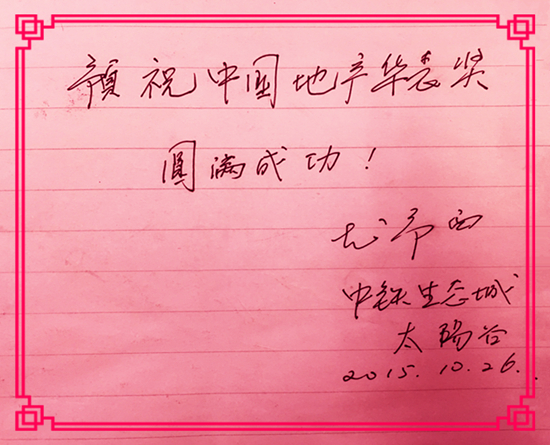 預祝中国地产华表奖
圓满成功！
中铁生态城
太陽谷
2015.10.26.